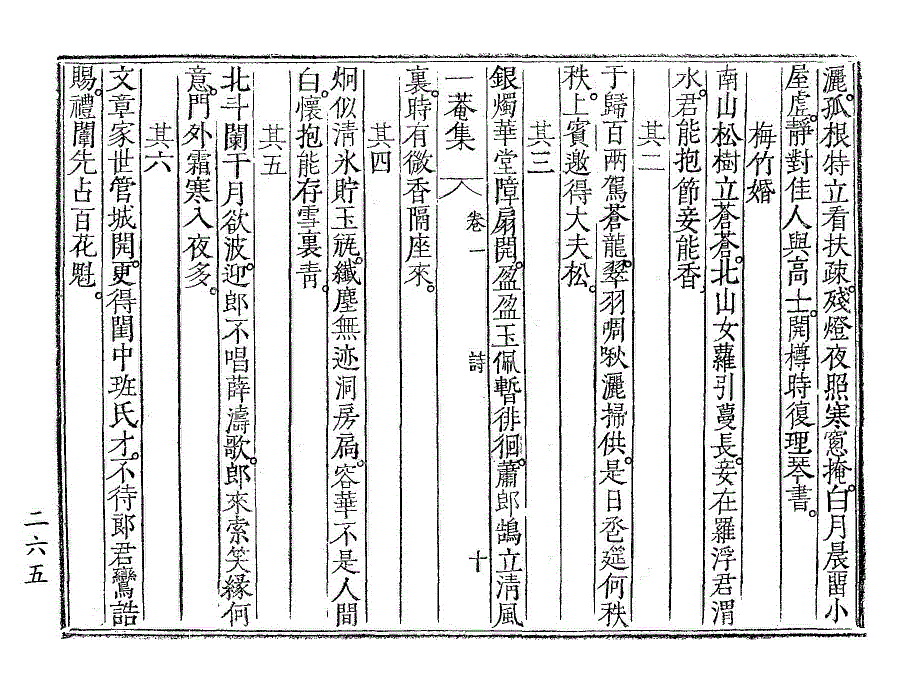 灑。孤根特立看扶疎。殘燈夜照寒窓掩。白月晨留小
屋虛。靜對佳人與高士。開樽時復理琴書。
梅竹婚
南山松樹立蒼蒼。北山女蘿引蔓長。妾在羅浮君渭
水。君能抱節妾能香。
其二
于歸百兩駕蒼龍。翠羽啁啾灑掃供。是日卺筵何秩
秩。上賓邀得大夫松。
其三
銀燭華堂障扇開。盈盈玉佩暫徘徊。蕭郎鵠立清風
一菴集 卷一 詩 十
裏。時有微香隔座來。
其四
炯似清氷貯玉瓶。纖塵無迹洞房扃。容華不是人間
白。懷抱能存雪裏靑。
其五
北斗闌干月欲波。迎郎不唱薛濤歌。郎來索笑緣何
意。門外霜寒入夜多。
其六
文章家世管城開。更得閨中班氏才。不待郎君鸞誥
賜。禮闈先占百花魁。
二六五